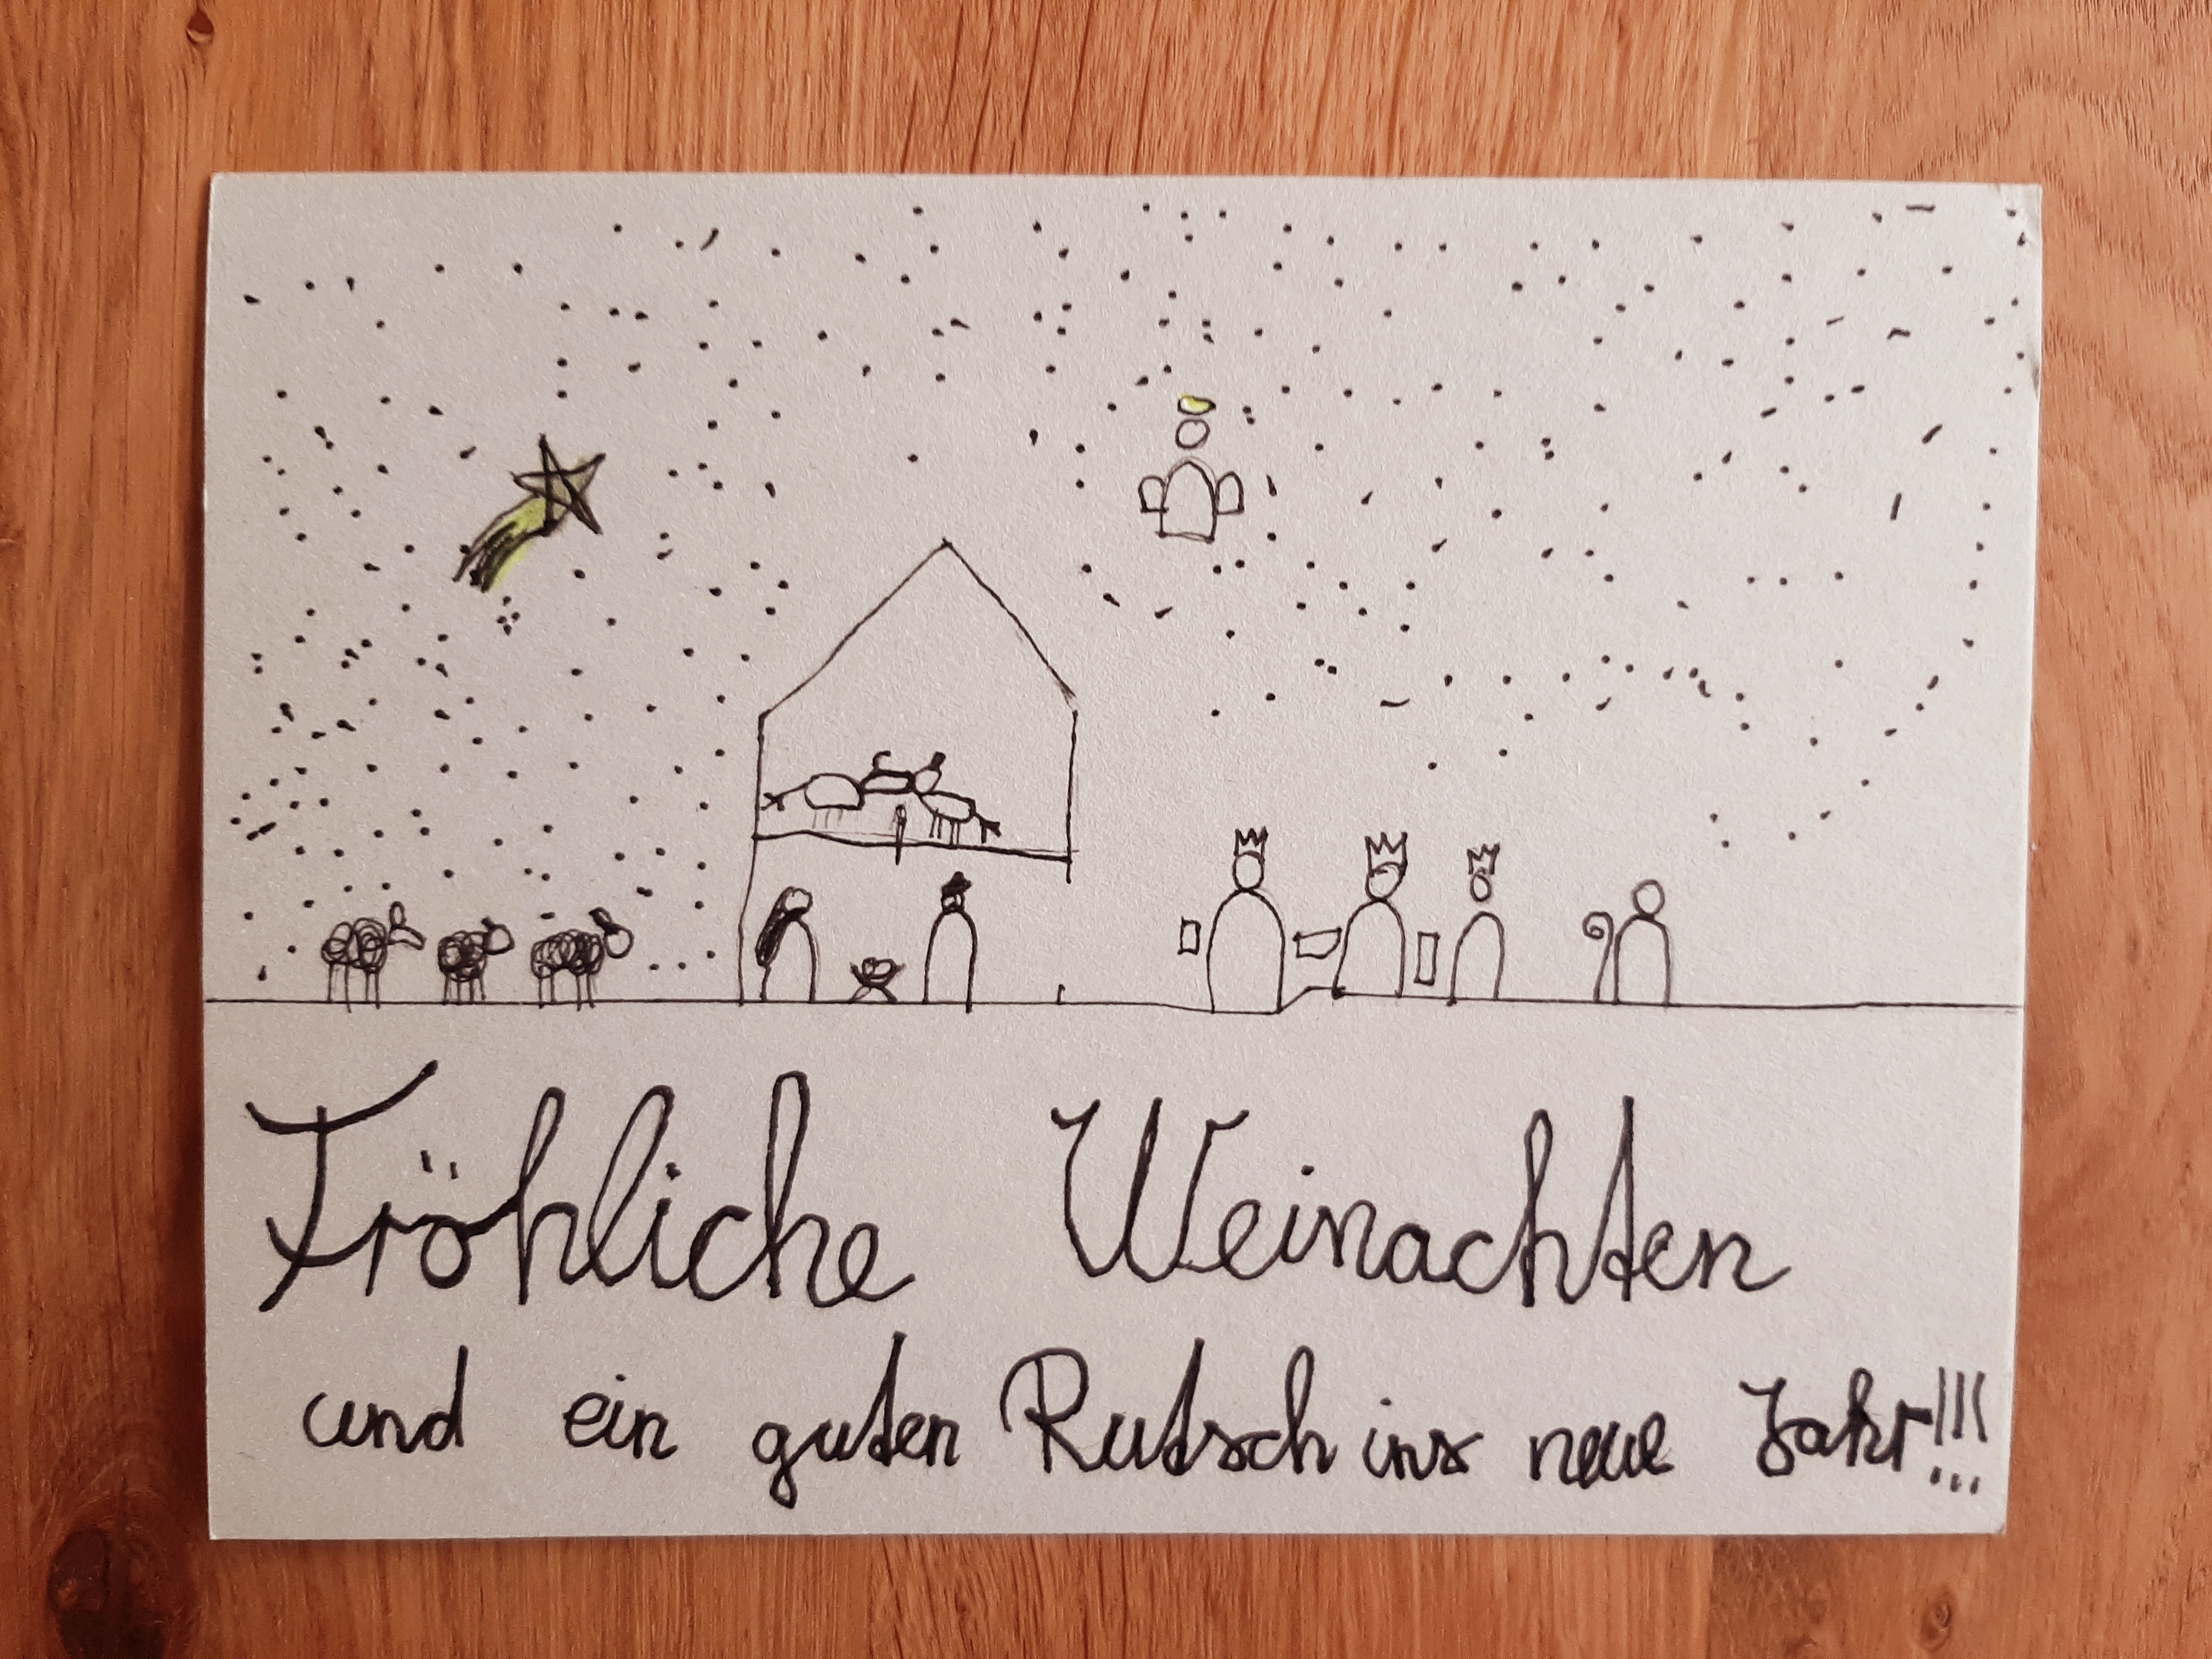 Fröhliche Weinachten
und ein guten Rutsch ins neue Jahr!!!